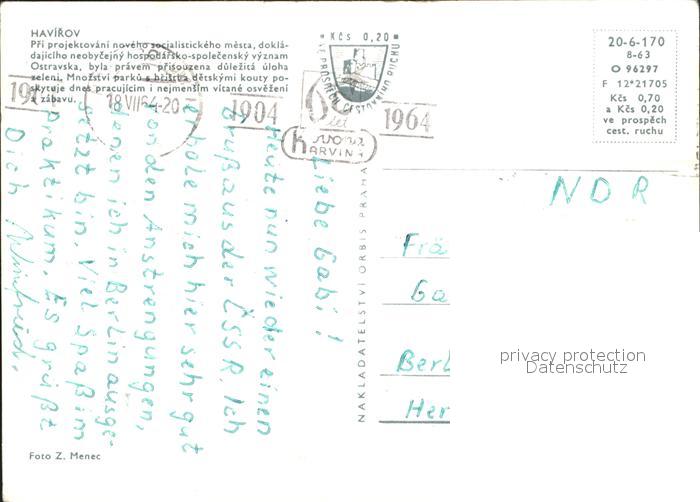 HAVÍŘOV
Při projektování nového socialistického města, doklá-
dajícího neobyčejný hospodářsko-společenský význam
Ostravska, byla právem přisouzena důležitá úloha
zeleni. Množství parků s hřišti a dětskými kouty po-
skytuje dnes pracujícím i nejmenším vítané osvěžení
a zábavu.
18.VII.64-20
1904
1964
let
KARVINÁ
Kčs 0,20
VE PROSPĚCH CESTOVNÍHO RUCHU
20-6-170
8-63
O 96297
F 12*21705
Kčs 0,70
a Kčs 0,20
ve prospěch
cest. ruchu
Liebe Gabi!
Heute nun wieder einen
Gruß aus der ČSSR. Ich
erhole mich hier sehr gut
von den Anstrengungen,
denen ich in Berlin ausge-
setzt bin. Viel Spaß im
Praktikum. Es grüßt
Dich Winfried.
NAKLADATELSTVÍ ORBIS PRAHA
NDR
Frä
Ga
Berl
Her
privacy protection
Datenschutz
Foto Z. Menec